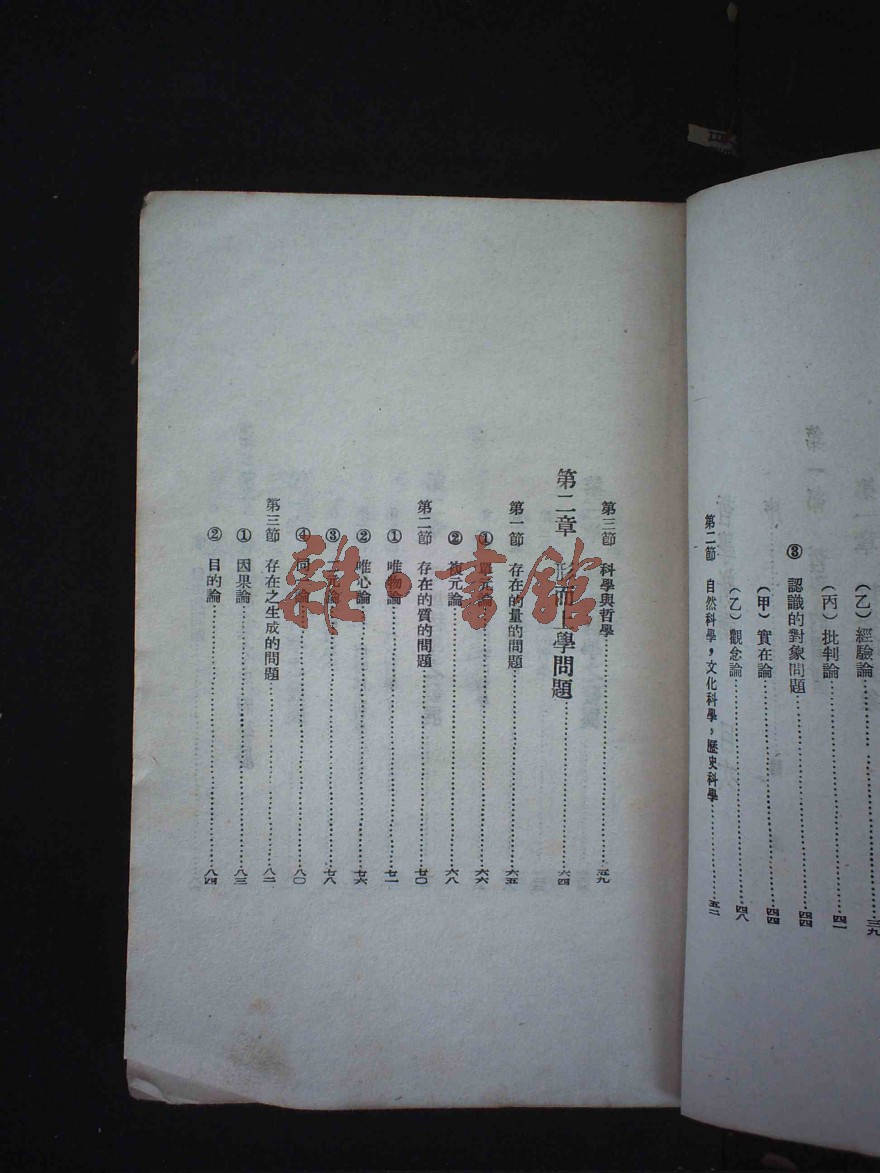 (乙)經驗論……三九
(丙)批判論……四一
③ 認識的對象問題……四四
(甲)實在論……四四
(乙)觀念論……四八
第二節 自然科學，文化科學，歷史科學……五二
第三節 科學與哲學……五九
第二章 形而上學問題……六四
第一節 存在的量的問題……六五
① 單元論……六六
② 複元論……六八
第二節 存在的質的問題……七〇
① 唯物論……七一
② 唯心論……七六
③ 二元論……七八
④ 同一論……八〇
第三節 存在之生成的問題……八二
① 因果論……八三
② 目的論……八四
雜·書館